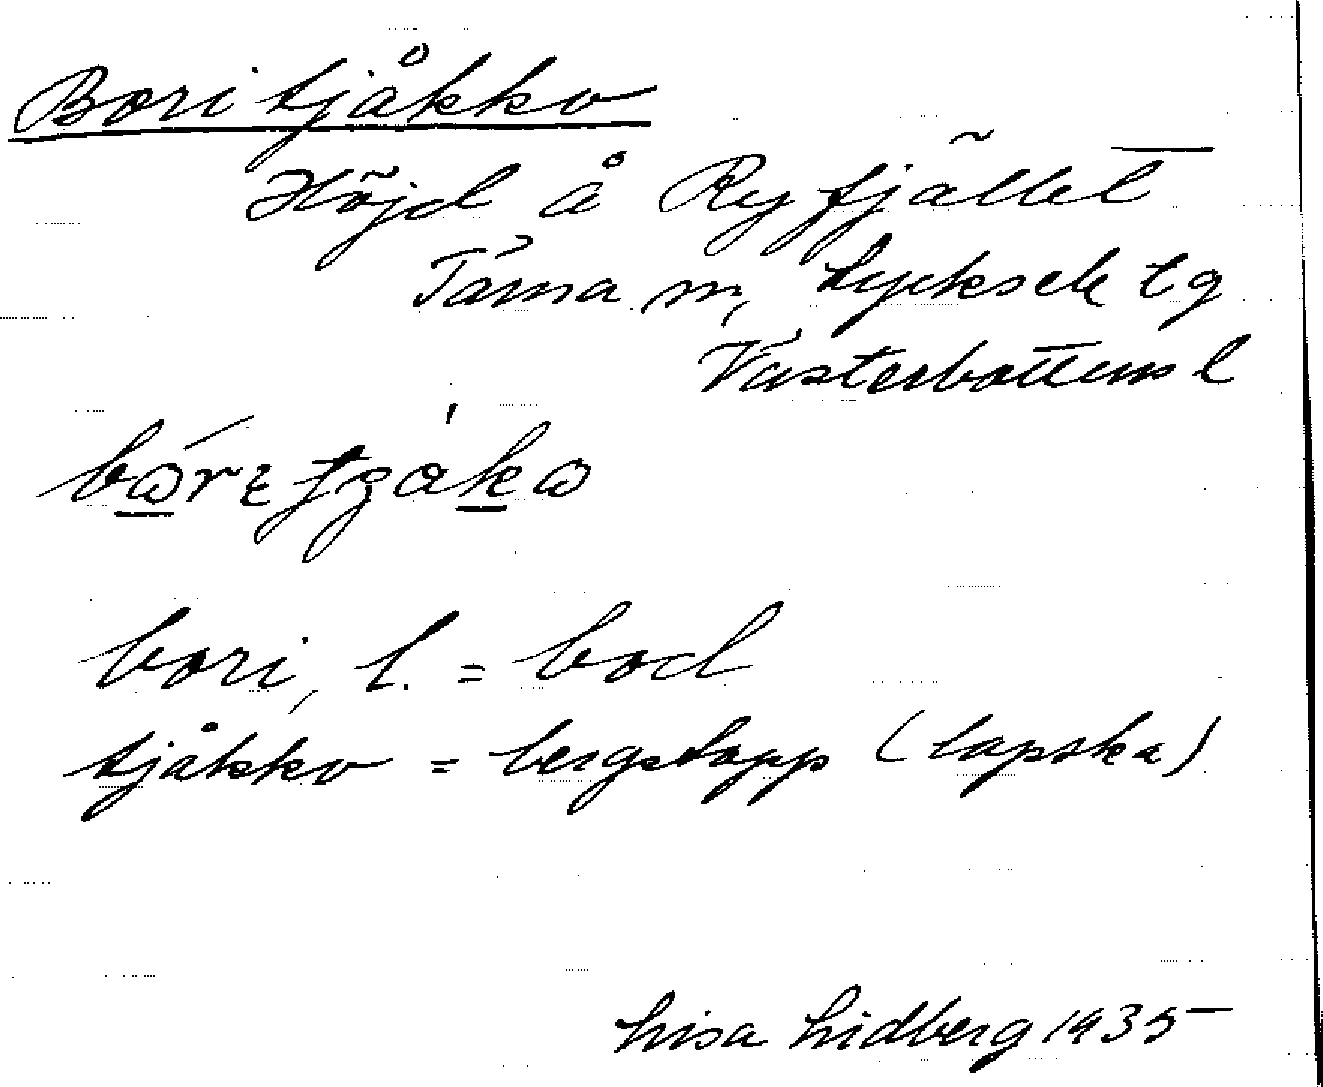 Boritjåkko
Höjd å Ryfjället
Tärna sn, Lycksele tg
Västerbottens l
bori, l. = bod
tjåkko = bergstopp (lapska)
Lisa Lidberg 1935